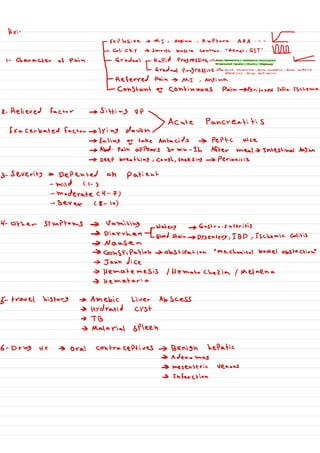 Hx:-
Explosive → MI, Angina, Rupture AAA
Colicky → Smooth muscle contrac. "Renal, GIT"
1- Character of Pain
Gradual
Rapid Progressive
Gradual Progressive
Referred Pain → MI, Angina
Constant or Continuous Pain → Peritonea Solia Ischemia
2- Relieved Factor → Sitting up
Acute Pancreatitis
Exacerbated Factor → lying down
→ Eating or take Antacids → Peptic ulce
→ Abd Pain appears 30 min-1h After meal → Intestinal Angina
→ Deep breathing, Cough, sneezing → Peritonitis
3- Severity → Depented on Patient
- mild (1-3)
- moderate (4-7)
- Sever (8-10)
4- Other Symptoms → Vomiting
→ Diarrhea
Watery → Gastro-enteritis
Blood Stain → Dysentery, IBD, Ischemic Colitis
→ Nausea
→ Constipation → obstipation "mechanical bowel obstruction"
→ Jaundice
→ Hematemesis / Hematochezia / Melena
→ Hematuria
5- travel history → Amebic Liver Abscess
→ Hydratid Cyst
→ TB
→ Malarial Spleen
6- Drug Hx → Oral Contraceptives → Benign hepatic
→ Adenomas
→ mesenteric venous
→ Infarction